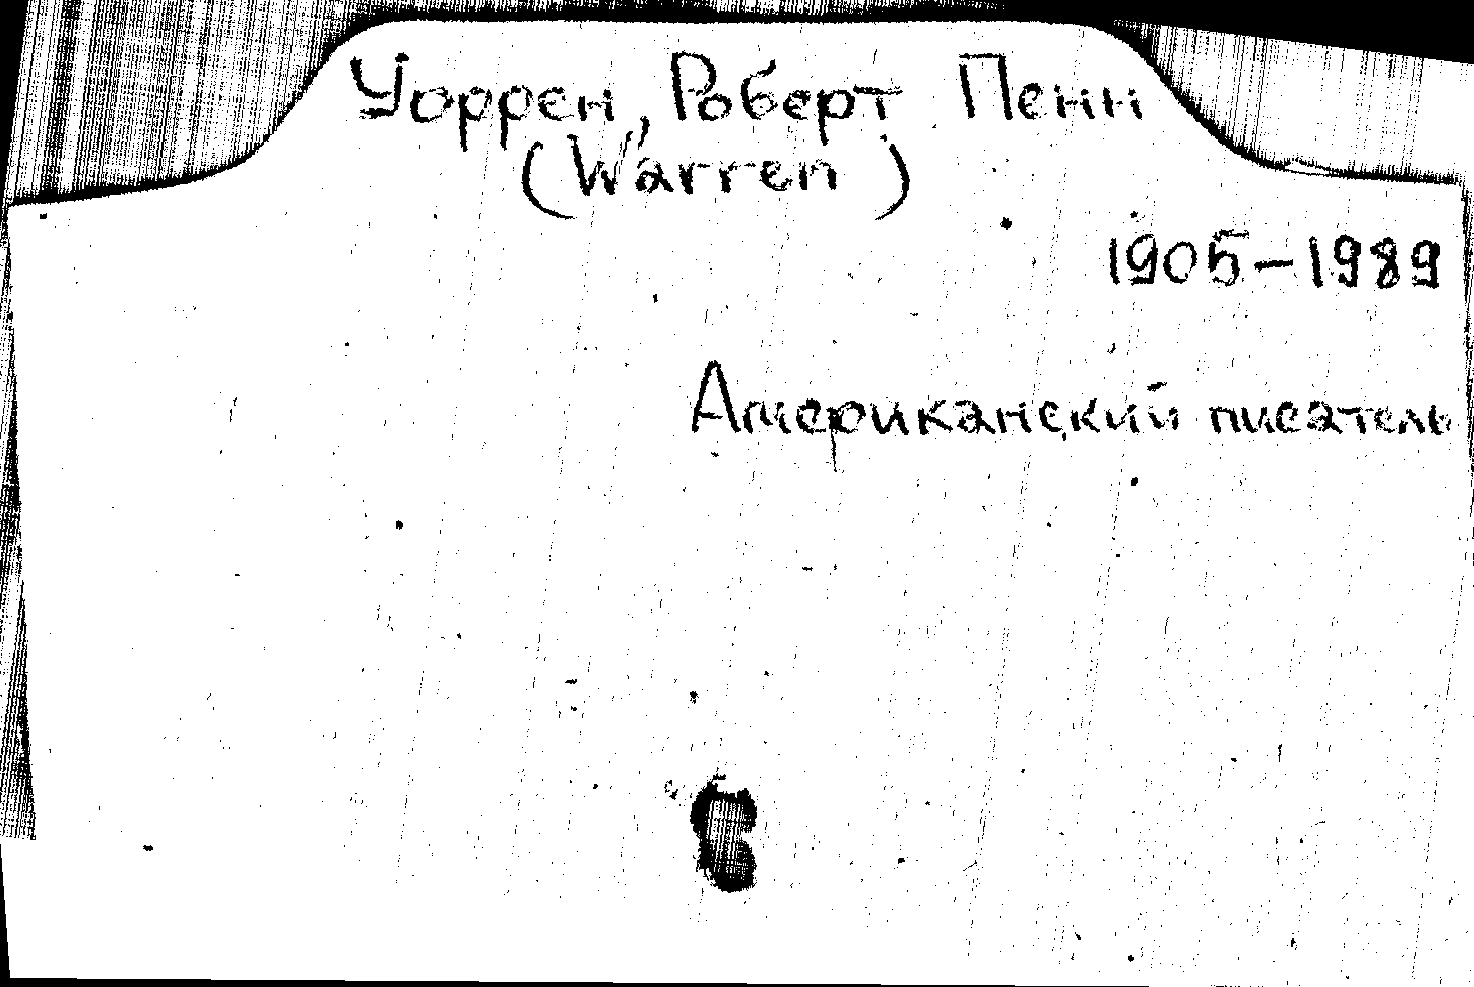 Уоррен, Роберт Пенн
(Warren)
1905-1989
Американский писатель